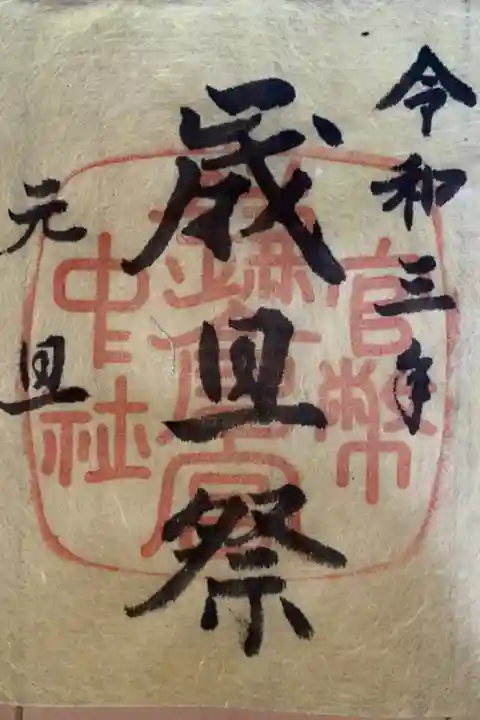 令和三年
歳旦祭
元旦
官幣
鎌倉宮
中社